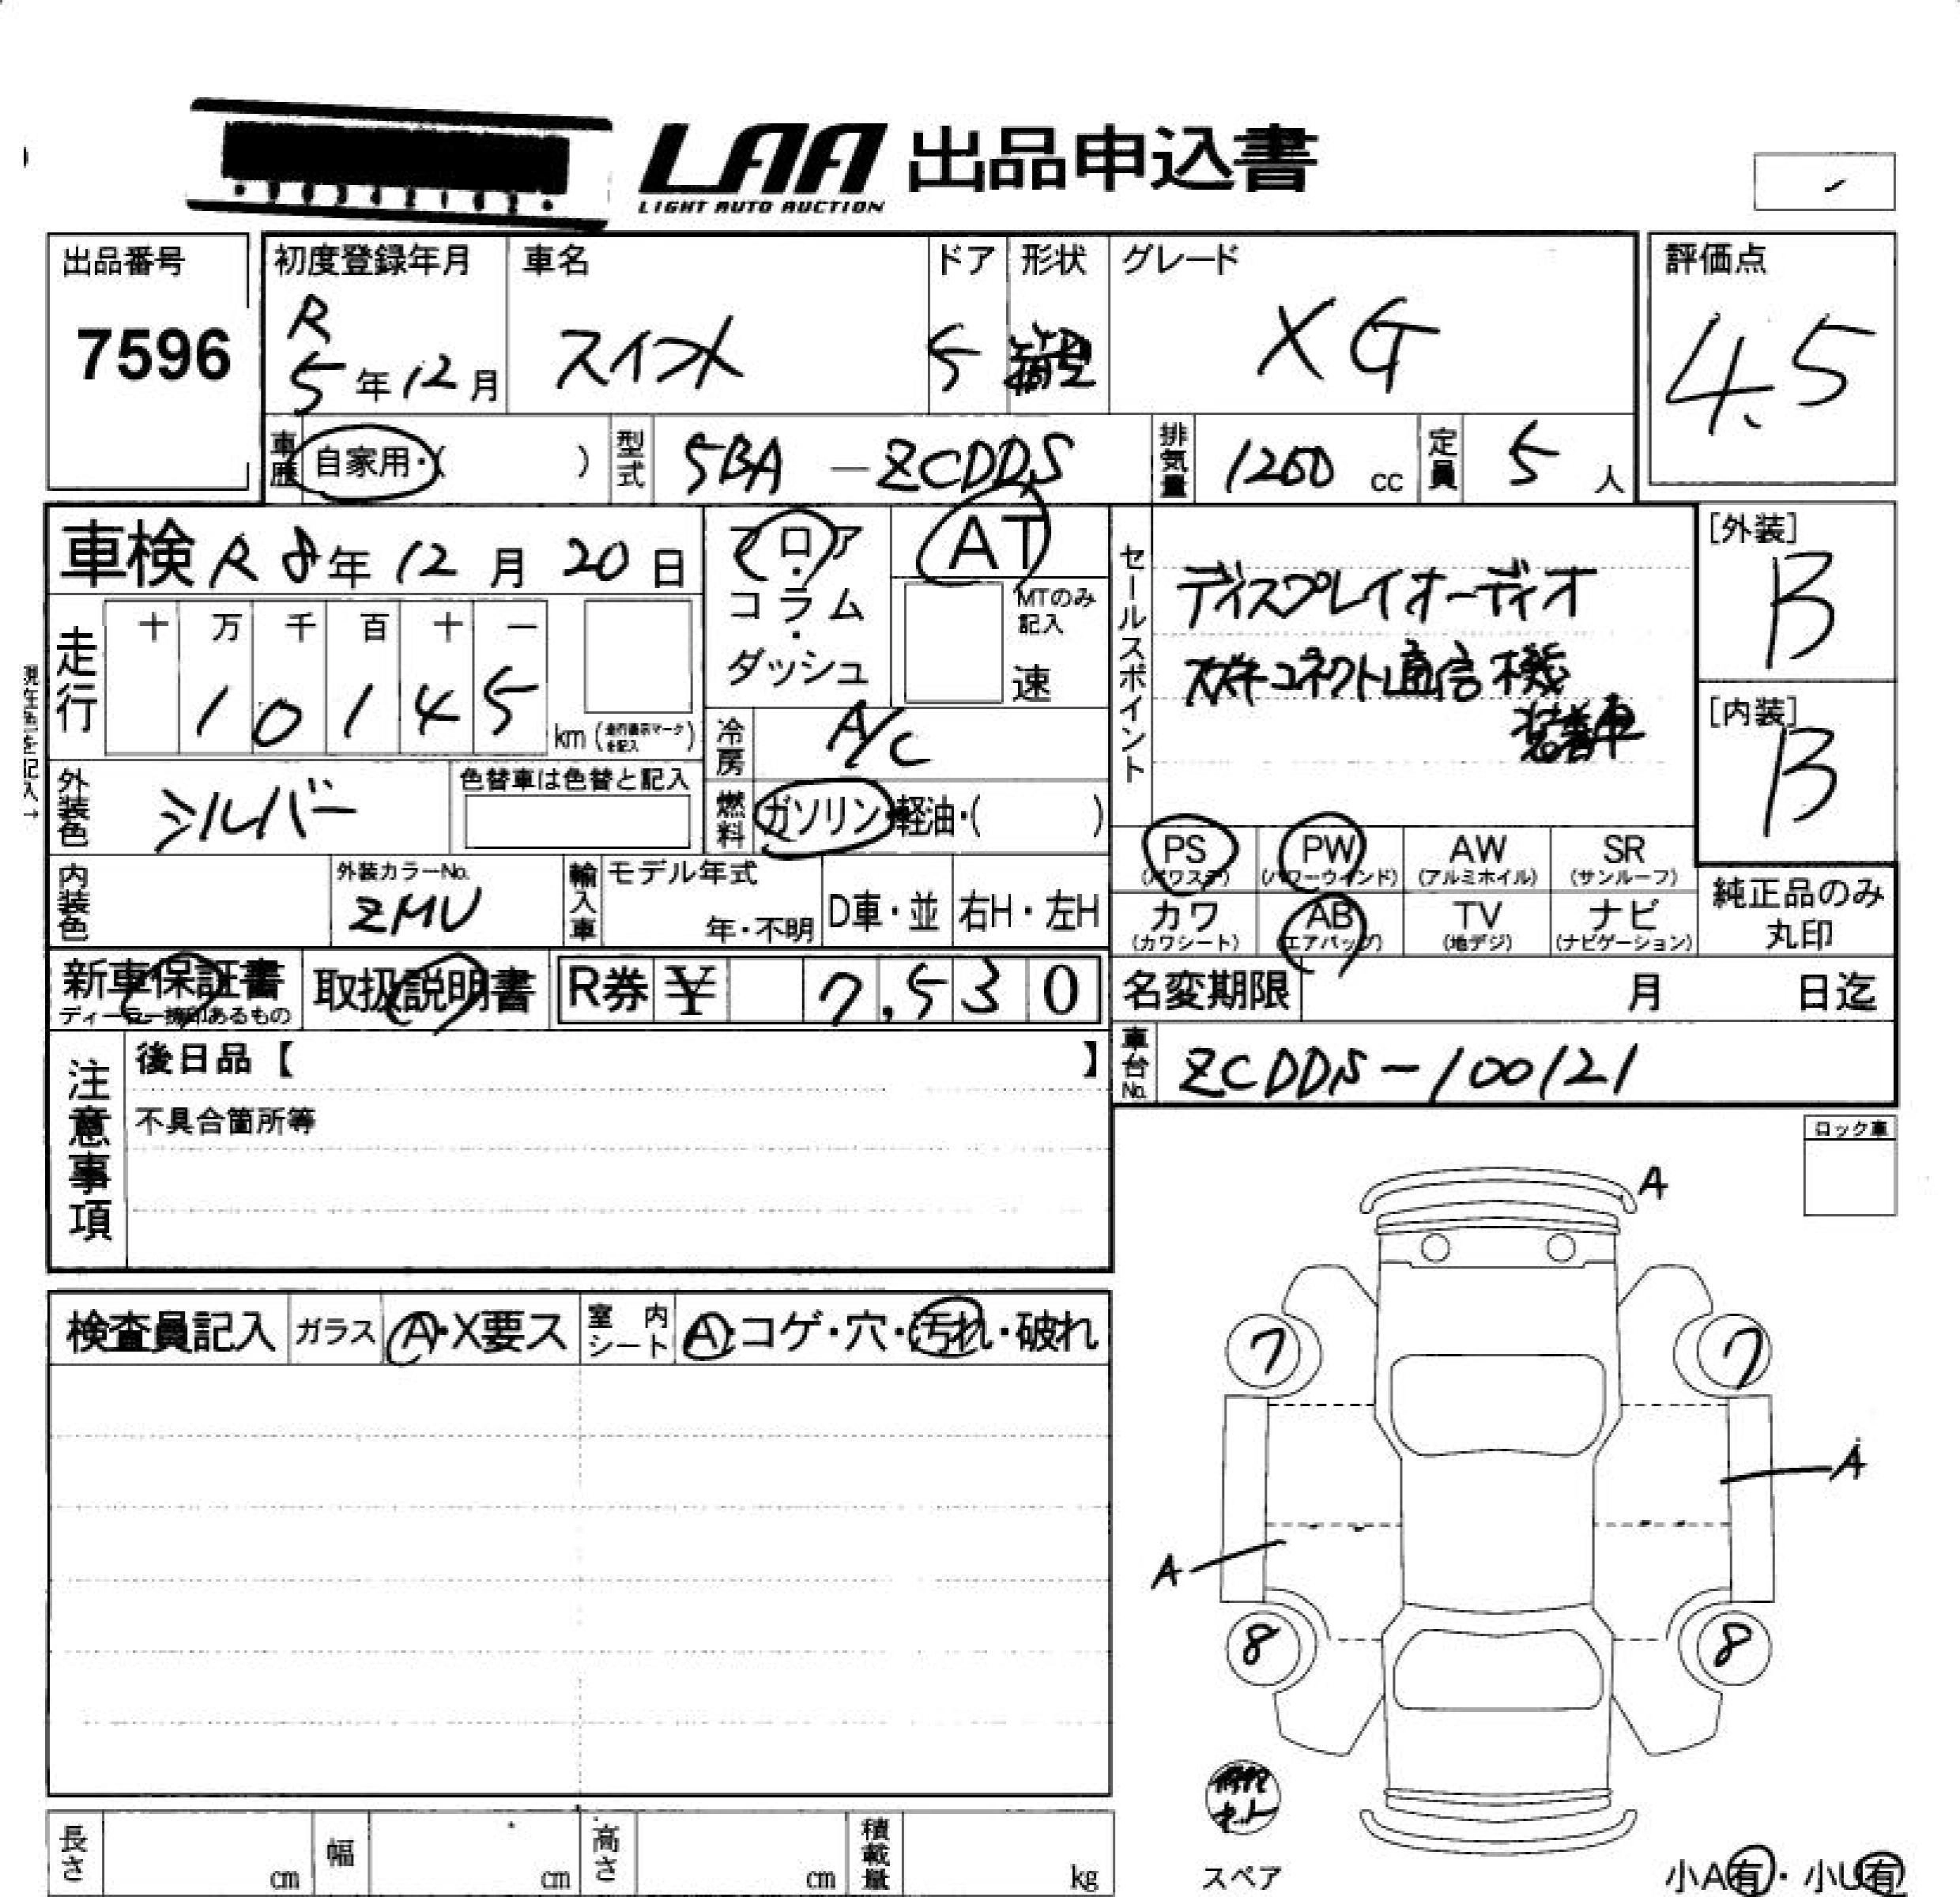 LAA 出品申込書
LIGHT AUTO AUCTION
出品番号
7596
初度登録年月
R
5年12月
車名
スイフト
ドア
5
形状
箱型
グレード
XG
評価点
4.5
車歴
自家用・( )
型式
5BA - ZCDDS
排気量
1200 cc
定員
5 人
車検 R 8年 12月 20日
フロア・コラム・ダッシュ
AT
MTのみ記入
速
走行
十 万 千 百 十 一
1 0 1 4 5
km (走行表示マークを記入)
現在色を記入→
外装色
シルバー
色替車は色替と記入
冷房
A/C
燃料
ガソリン・軽油・( )
内装色
外装カラーNo.
ZMU
輸入車
モデル年式
年・不明
D車・並
右H・左H
新車保証書
取扱説明書
R券 ¥ 7,530
セールスポイント
ディスプレイオーディオ
スズキコネクト通信機
装着車
[外装]
B
[内装]
B
PS (パワステ)
PW (パワーウインド)
AW (アルミホイル)
SR (サンルーフ)
カワ (カワシート)
AB (エアバッグ)
TV (地デジ)
ナビ (ナビゲーション)
純正品のみ
丸印
名変期限 月 日迄
車台No.
ZCDDS-100121
注意事項
後日品【 】
不具合箇所等
ロック車
検査員記入
ガラス A・X要ス
室内シート A・コゲ・穴・汚れ・破れ
A
7 7
A
A
8 8
スペア
小A有・小U有
長さ cm
幅 cm
高さ cm
積載量 kg